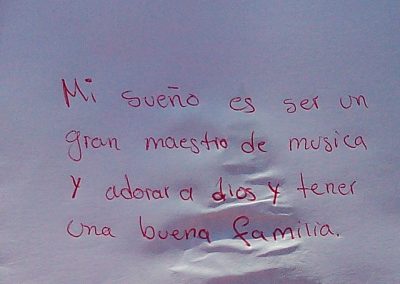 Mi sueño es ser un
gran maestro de musica
y adorar a dios y tener
una buena familia.